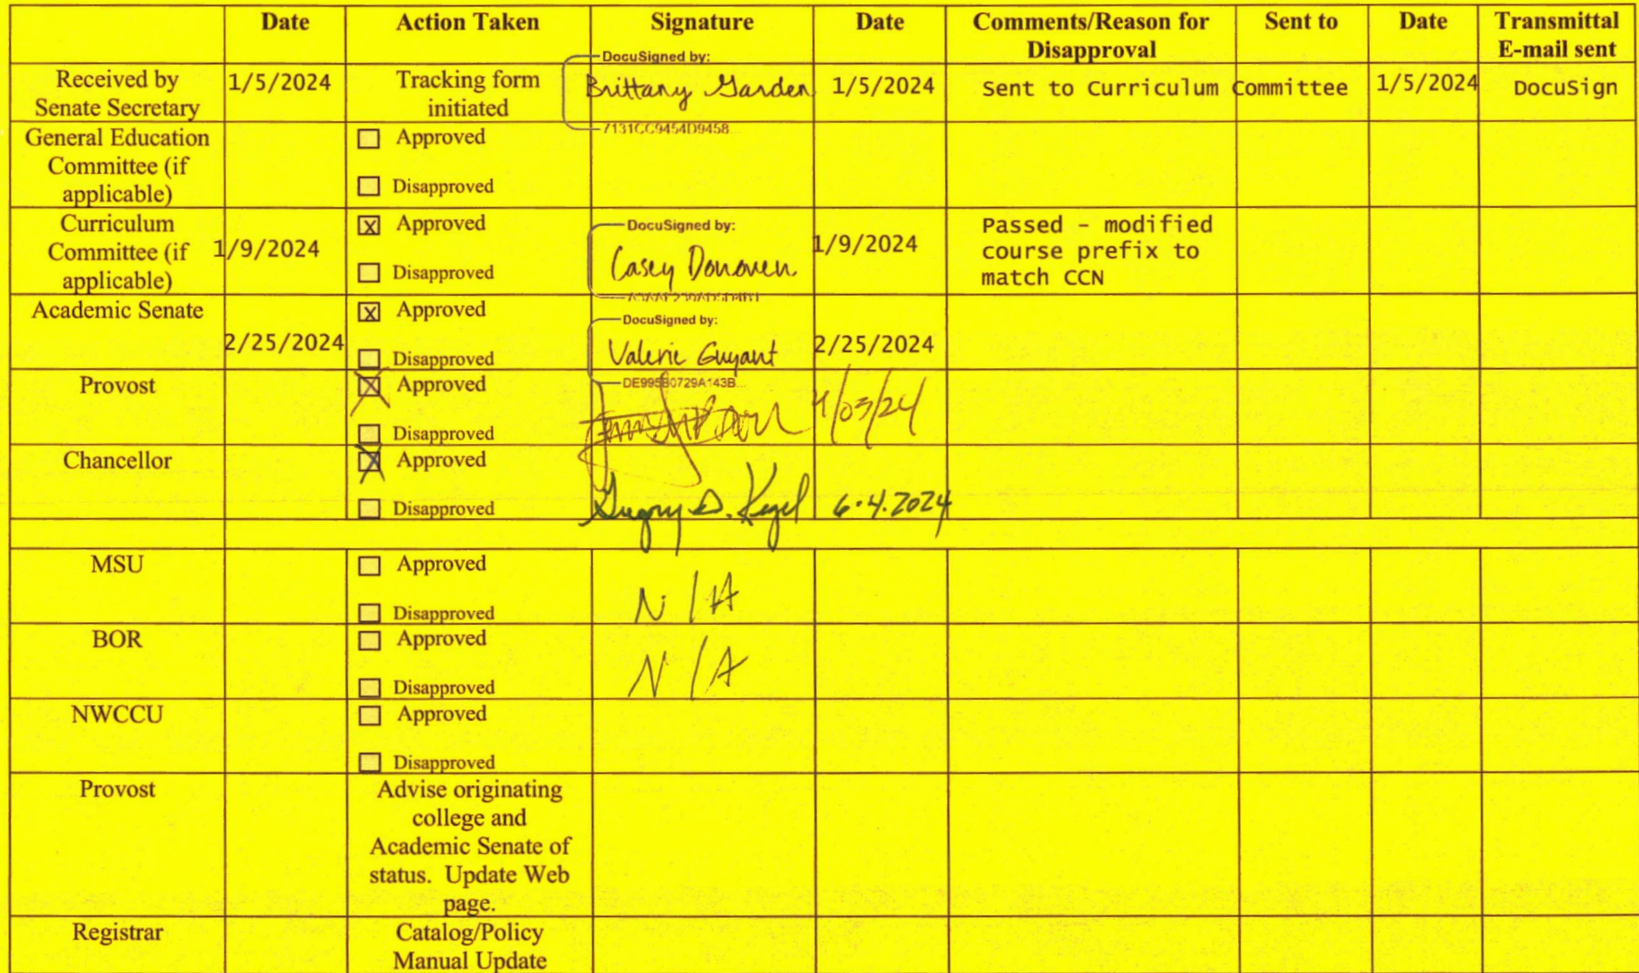 Date Action Taken Signature Date Comments/Reason for Disapproval Sent to Date Transmittal E-mail sent
Received by Senate Secretary 1/5/2024 Tracking form initiated DocuSigned by: Brittany Garden 7131CC9454D9458... 1/5/2024 Sent to Curriculum Committee 1/5/2024 DocuSign
General Education Committee (if applicable) Approved
Disapproved
Curriculum Committee (if applicable) 1/9/2024 X Approved DocuSigned by: Casey Donoven 1/9/2024 Passed - modified course prefix to match CCN
Disapproved
Academic Senate 2/25/2024 X Approved DocuSigned by: Valerie Guyant DE995B0729A143B... 2/25/2024
Disapproved
Provost X Approved
Disapproved
Chancellor X Approved Gregory D. Kegel 6.4.2024
Disapproved
MSU Approved N/A
Disapproved
BOR Approved N/A
Disapproved
NWCCU Approved
Disapproved
Provost Advise originating college and Academic Senate of status. Update Web page.
Registrar Catalog/Policy Manual Update